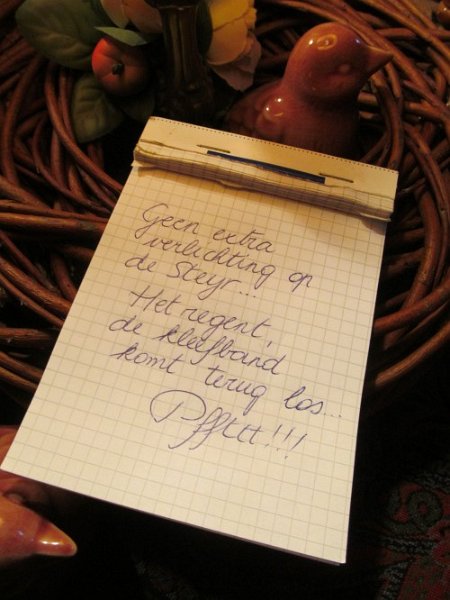 Geen extra
verlichting op
de Steyr...
Het regent,
de kleefband
komt terug los...
Pffttt!!!